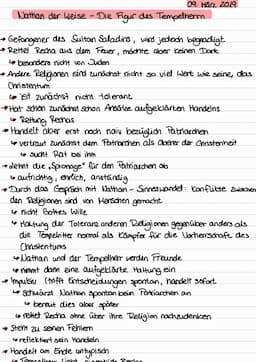 09. März, 2019
Nathan der Weise - Die Figur des Tempelherrn
→ Gefangener des Sultan Saladins, wird jedoch begnadigt
→ Rettet Recha aus dem Feuer, möchte aber keinen Dank
↳ besonders nicht von Juden
→ Andere Religionen sind zunächst nicht so viel Wert wie seine, das
Christentum
↳ Ist zunächst nicht tolerant
→ Hat schon zunächst schon Ansätze aufgeklärten Handelns
↳ Rettung Rechas
→ Handelt aber erst noch naiv bezüglich Patriarchen
↳ vertraut zunächst dem Patriarchen als oberer der Christenheit
↳ sucht Rat bei ihm
→ lehnt die „Spionage" für den Patriarchen ab
↳ aufrichtig, ehrlich, anständig
→ Durch das Gespräch mit Nathan - Sinneswandel: Konflikte zwischen
den Religionen sind von Menschen gemacht
↳ nicht Gottes Wille
↳ Haltung der Toleranz anderen Religionen gegenüber anders als
die Tempelritter normal als Kämpfer für die Vorherrschaft des
Christentums
↳ Nathan und der Tempelherr werden Freunde
↳ nimmt dann eine aufgeklärte Haltung ein
→ Impulsiv (trifft Entscheidungen spontan, handelt sofort
↳ Schwärzt Nathan spontan beim Patriarchen an
↳ bereut dies aber später
↳ rettet Recha ohne über ihre Religion nachzudenken
→ Steht zu seinen Fehlern
↳ reflektiert sein Handeln
→ Handelt am Ende untypisch